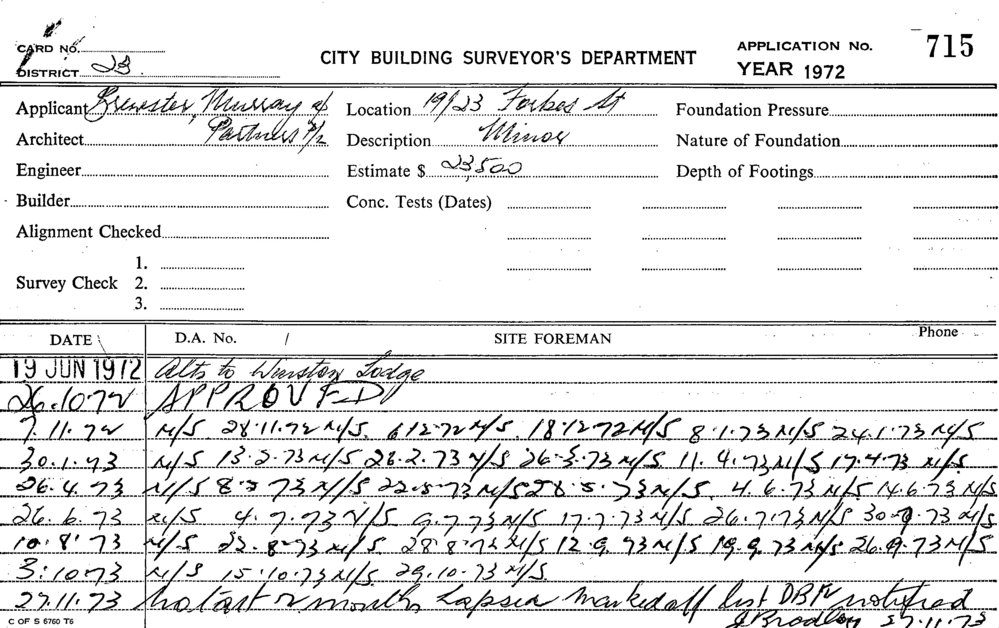 CARD No.
DISTRICT 23
CITY BUILDING SURVEYOR'S DEPARTMENT
APPLICATION No. 715
YEAR 1972
Applicant Brewster, Murray &
Location 19/23 Forbes St
Foundation Pressure
Architect Partners P/L
Description Minor
Nature of Foundation
Engineer
Estimate $ 23,500
Depth of Footings
Builder
Conc. Tests (Dates)
Alignment Checked
Survey Check
1.
2.
3.
DATE D.A. No. / SITE FOREMAN Phone
19 JUN 1972 Alts to Winston Lodge
26.10.72 APPROVED
7.11.72 N/S 28.11.72 N/S. 6.12.72 N/S. 18.12.72 N/S 8.1.73 N/S 24.1.73 N/S
30.1.73 N/S 13.2.73 N/S 26.2.73 N/S 26.3.73 N/S. 11.4.73 N/S 17.4.73 N/S
26.4.73 N/S 8.5.73 N/S 22.5.73 N/S 28.5.73 N/S. 4.6.73 N/S 14.6.73 N/S
26.6.73 N/S 4.7.73 N/S 9.7.73 N/S 17.7.73 N/S 26.7.73 N/S 30.7.73 N/S
10.8.73 N/S 22.8.73 N/S. 28.8.73 N/S 12.9.73 N/S 19.9.73 N/S 26.9.73 N/S
3.10.73 N/S 15.10.73 N/S 29.10.73 N/S.
27.11.73 months Lapsed Marked off list notified
C OF S 6760 T6
J Bradley 27.11.73